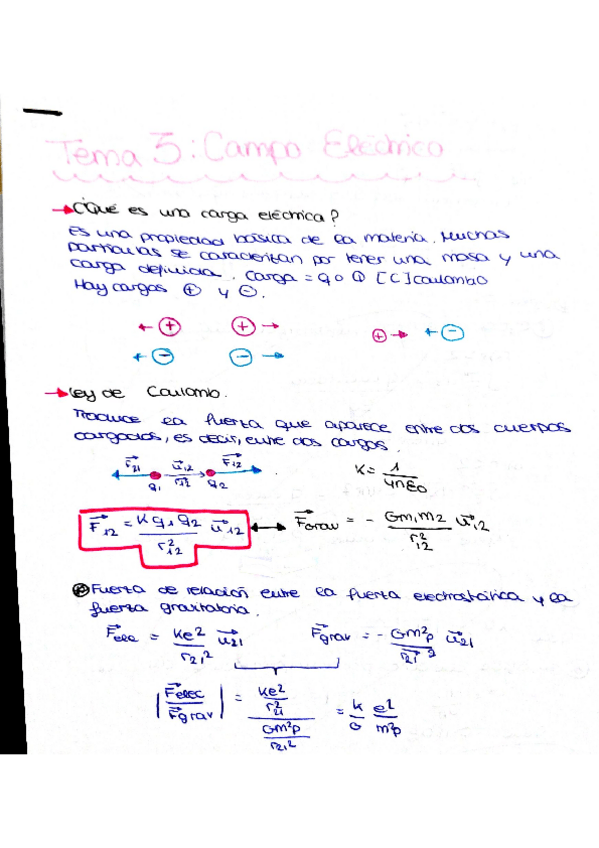 Tema 3: Campo Eléctrico
¿Qué es una carga eléctrica?
Es una propiedad básica de la materia. Muchas
partículas se caracterizan por tener una masa y una
carga definida. Carga = q o Q [C] Coulombio
Hay cargas ⊕ y ⊖.
← ⊕ ⊕ → ⊕ → ← ⊖
← ⊖ ⊖ →
Ley de Coulomb.
Traduce la fuerza que aparece entre dos cuerpos
cargados, es decir, entre dos cargas.
F⃗21 u⃗12 F⃗12
q1 r12 q2
K = 1 / 4πε0
F⃗12 = K q1 q2 / r²12 u⃗12 ↔ F⃗grav = - G m1 m2 / r²12 u⃗12
Fuerza de relación entre la fuerza electrostática y la
fuerza gravitatoria.
F⃗ele = Ke² / r21² u⃗21 F⃗grav = - Gm²p / r21² u⃗21
|F⃗elec / F⃗grav| = (Ke² / r²21) / (Gm²p / r21²) = K/G e²/m²p